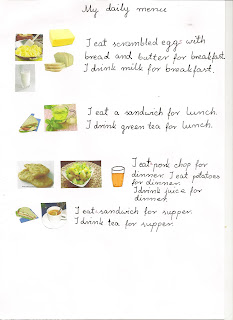 My daily menu
I eat scrambled eggs with
bread and butter for breakfast.
I drink milk for breakfast.
I eat a sandwich for lunch.
I drink green tea for lunch.
I eat pork chop for
dinner. I eat potatoes
for dinner.
I drink juice for
dinner.
I eat sandwich for supper.
I drink tea for supper.